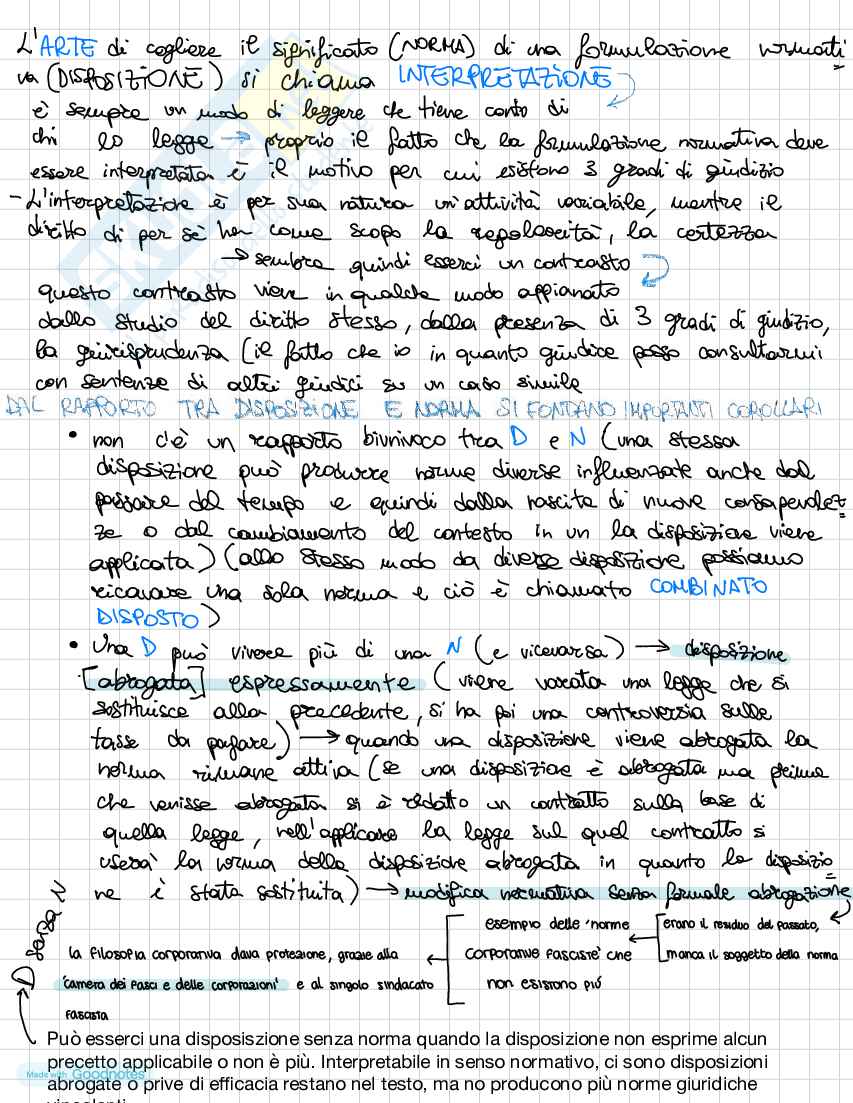 L'ARTE di cogliere il significato (NORMA) di una formulazione normati
va (DISPOSIZIONE) si chiama INTERPRETAZIONE
è sempre un modo di leggere che tiene conto di
chi lo legge → proprio il fatto che la formulazione normativa deve
essere interpretata è il motivo per cui esistono 3 gradi di giudizio
- L'interpretazione è per sua natura un'attività variabile, mentre il
diritto di per sè ha come scopo la regolarità, la certezza
→ sembra quindi esserci un contrasto
questo contrasto viene in qualche modo appianato
dallo studio del diritto stesso, dalla presenza di 3 gradi di giudizio,
la giurisprudenza (il fatto che io in quanto giudice posso consultarmi
con sentenze di altri giudici su un caso simile
DAL RAPPORTO TRA DISPOSIZIONE E NORMA SI FONDANO IMPORTANTI COROLLARI
• non c'è un rapporto biunivoco tra D e N (una stessa
disposizione può produrre norme diverse influenzate anche dal
passare del tempo e quindi dalla nascita di nuove consapevolez
ze o dal cambiamento del contesto in un la disposizione viene
applicata) (allo stesso modo da diverse disposizione possiamo
ricavare una sola norma e ciò è chiamato COMBINATO
DISPOSTO)
• Una D può vivere più di una N (e viceversa) → disposizione
[abrogata] espressamente (viene varata una legge che si
sostituisce alla precedente, si ha poi una controversia sulle
tasse da pagare) → quando una disposizione viene abrogata la
norma rimane attiva (se una disposizione è abrogata ma prima
che venisse abrogata si è redatto un contratto sulla base di
quella legge, nell'applicare la legge sul quel contratto si
userà la norma della disposizione abrogata in quanto la disposizio
ne è stata sostituita) → modifica normativa senza formale abrogazione
erano il residuo del passato,
manca il soggetto della norma
esempio delle 'norme
corporative fasciste' che
non esistono più
la filosofia corporativa dava protezione, grazie alla
'camera dei fasci e delle corporazioni' e al singolo sindacato
fascista
D senza N
Può esserci una disposiszione senza norma quando la disposizione non esprime alcun
precetto applicabile o non è più. Interpretabile in senso normativo, ci sono disposizioni
abrogate o prive di efficacia restano nel testo, ma no producono più norme giuridiche
vincolanti
Made with Goodnotes